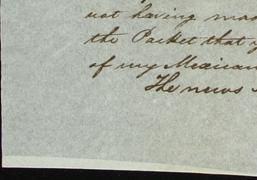 not having made
the Packet that
of my Mexican
The news